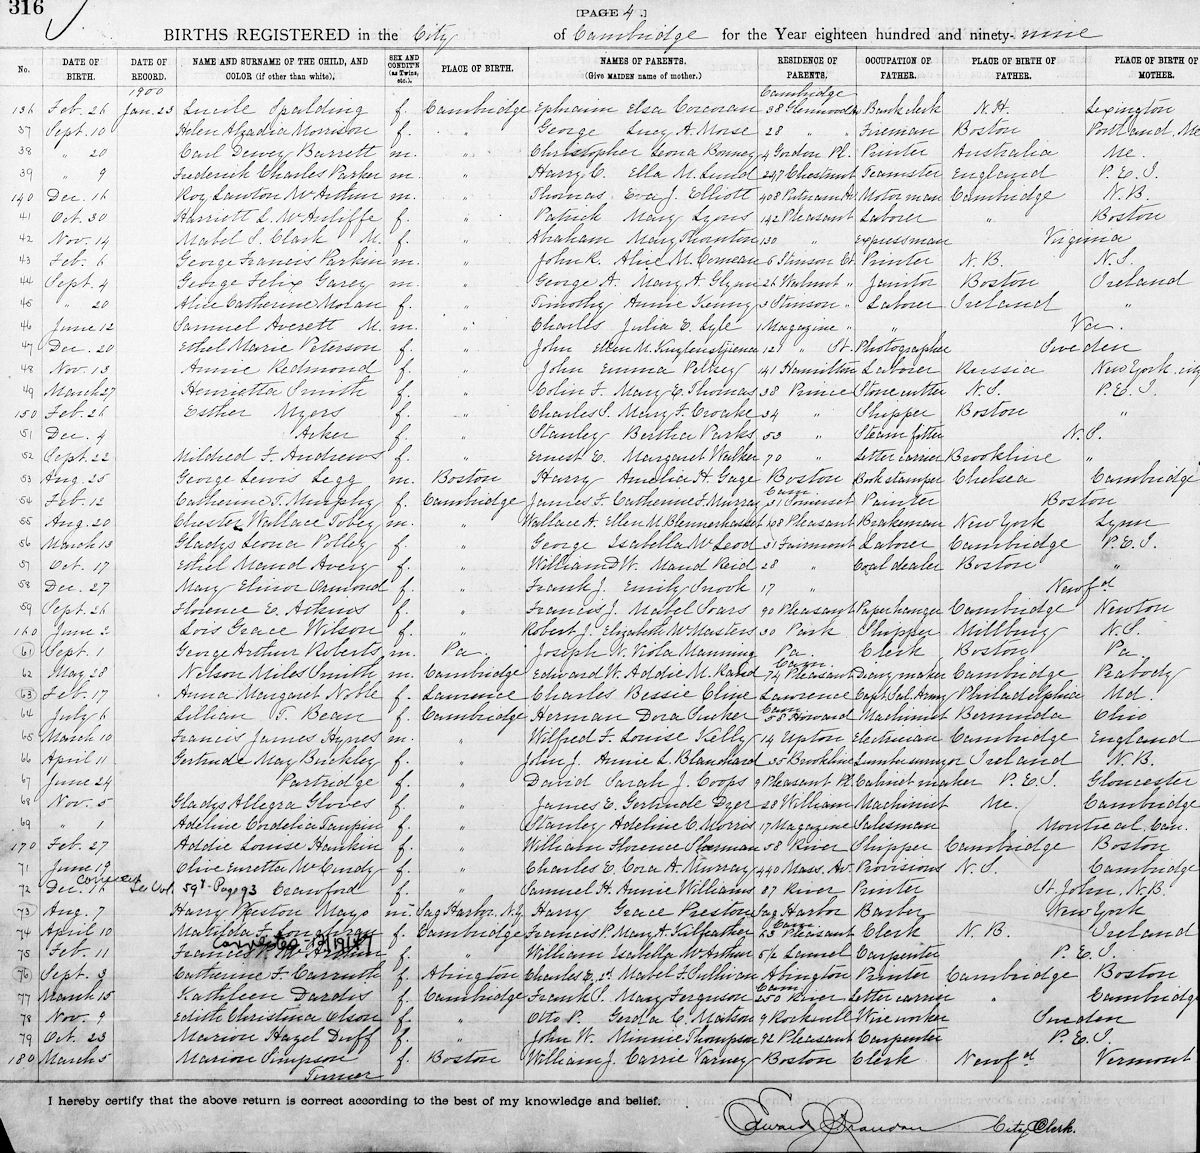 316
[PAGE 4.]
BIRTHS REGISTERED in the City of Cambridge for the Year eighteen hundred and ninety-nine
No. DATE OF BIRTH. DATE OF RECORD. NAME AND SURNAME OF THE CHILD, AND COLOR (if other than white), SEX AND CONDIT'N (as Twins, etc.). PLACE OF BIRTH. NAMES OF PARENTS. (Give MAIDEN name of mother.) RESIDENCE OF PARENTS, OCCUPATION OF FATHER. PLACE OF BIRTH OF FATHER. PLACE OF BIRTH OF MOTHER.
1900 Cambridge
136 Feb. 26 Jan. 23 Lucile Spalding f. Cambridge Ephraim Elsa Corcoran 38 Glenwood Bank clerk N.H. Lexington
37 Sept. 10 Helen Alzadia Morrison f. " George Lucy A. Morse 28 " " Fireman Boston Portland, Me
38 " 20 Carl Dewey Barrett m. " Christopher Leona Bonney 4 Gordon Pl. Printer Australia Me.
39 " 9 Frederick Charles Parker m. " Harry C. Ella M. Lund 247 Chestnut Teamster England P.E.I.
140 Dec. 16 Roy Lawton McArthur m. " Thomas Eva J. Elliott 408 Putnam Av Motorman Cambridge N.B.
41 Oct. 30 Harriett L. McAuliffe f. " Patrick Mary Lyons 142 Pleasant Laborer " Boston
42 Nov. 14 Mabel S. Clark M. f. " Abraham Mary Thornton 130 " Expressman Virginia
43 Feb. 6 George Francis Parkin m. " John R. Alice M. Comeau 6 Stinson Ct. Printer N.B. N.S.
44 Sept. 4 George Felix Garey m. " George A. Mary A. Glynn 26 Walnut " Janitor Boston Ireland
45 " 20 Alice Catherine Molan f. " Timothy Annie Kenny 3 Stinson " Laborer Ireland "
46 June 12 Samuel Averett M. m. " Charles Julia E. Lyle 1 Magazine " " Va.
47 Dec. 20 Ethel Marie Peterson f. " John Ellen M. 121 " St. Photographer Sweden
48 Nov. 13 Annie Redmond f. " John Emma Peltsey 141 Hamilton Laborer Russia New York city
49 March 27 Henrietta Smith f. " Colin F. Mary E. Thomas 38 Prince Stone cutter N.S. P.E.I.
150 Feb. 26 Esther Myers f. " Charles S. Mary F. Croake 34 " Shipper Boston "
51 Dec. 4 Acker f. " Stanley Bertha Parks 53 " Steam fitter N.S.
52 Sept. 22 Mildred F. Andrews f. " Ernest E. Margaret Walker 70 " Letter carrier Brookline "
53 Aug. 25 George Lewis Legg m. Boston Harry Amelia H. Gage Boston Book stamper Chelsea Cambridge
54 Feb. 12 Catherine T. Murphy f. Cambridge James F. Catherine F. Murray Cam. 31 Somerset Painter Boston
55 Aug. 20 Chester Wallace Tobey m. " Wallace A. Ellen M. Blennerhasset 148 Pleasant Brakeman New York Lynn
56 March 13 Gladys Leona Polley f. " George Isabella McLeod 31 Fairmont Laborer Cambridge P.E.I.
57 Oct. 17 Ethel Maud Avery f. " William D.W. Maud Reid 28 " Coal dealer Boston "
58 Dec. 27 Mary Elinor Ormond f. " Frank J. Emily Snook 17 " Newfd
59 Sept. 26 Florence E. Atkins f. " Francis J. Mabel Soars 90 Pleasant Paper hanger Cambridge Newton
160 June 2 Lois Grace Wilson f. " Robert J. Elizabeth McMasters 30 Park Shipper Millbury N.S.
61 Sept. 1 George Arthur Roberts m. Pa. Joseph W. Viola Manning Pa. Clerk Boston Pa.
62 May 28 Nelson Miles Smith m. Cambridge Edward W. Addie M. Rand Cam. 74 Pleasant Diary maker Cambridge Peabody
63 Feb. 17 Anna Margaret Noble f. Lawrence Charles Bessie Cline Lawrence Capt. Sal. Army Philadelphia Md.
64 July 6 Lillian T. Bean f. Cambridge Herman Dora Tucker Cam. 58 Howard Machinist Bermuda Ohio
65 March 10 Francis James Hynes m. " Wilfred F. Louise Kelly 14 Upton Electrician Cambridge England
66 April 11 Gertrude May Binckley f. " John J. Annie L. Blanchard 35 Brookline Lumber surveyor Ireland N.B.
67 June 24 Partridge f. " David Sarah J. Coops 9 Pleasant Pl. Cabinet maker P.E.I. Gloucester
68 Nov. 5 Gladys Allegra Gloves f. " James E. Gertrude Dyer 28 William Machinist Me. Cambridge
69 " 1 Adeline Cordelia Taupin f. " Stanley Adeline C. Morris 17 Magazine Salesman Montreal, Can.
170 Feb. 27 Addie Louise Hankin f. " William Florence Sharman 58 River Shipper Cambridge Boston
71 June 19 Olive Euretta McCurdy f. " Charles E. Cora A. Murray 440 Mass. Av. Provisions N.S. Cambridge
72 Dec. 16 Correct See Vol. 597 - Page 93 Crawford f. " Samuel H. Annie Williams 87 River Printer St. John, N.B.
73 Aug. 7 Harry Preston Mayo m. Sag Harbor, N.Y. Harry Grace Preston Sag Harbor Barber New York
74 April 10 Matilda F. f. Cambridge Francis P. Mary A. Kilfeather Cam. 23 Pleasant Clerk N.B. Ireland
Corrected
75 Feb. 11 Francis f. " William Isabella McArthur Laurel Carpenter P.E.I.
76 Sept. 3 Catherine F. Carruth f. Abington Charles E. 1st Mabel F. Sullivan Abington Printer Cambridge Boston
77 March 15 Kathleen Dardis f. Cambridge Frank S. Mary Ferguson Cam. 250 River Letter carrier " Cambridge
78 Nov. 9 Edith Christina Olson f. " Otto P. Gerda C. Matson 9 Rockwell Wire worker Sweden
79 Oct. 23 Marion Hazel Duff f. " John W. Minnie Thompson 92 Pleasant Carpenter P.E.I.
180 March 5 Marion Simpson f. Boston William J. Carrie Varney Boston Clerk Newfd Vermont
Turner
I hereby certify that the above return is correct according to the best of my knowledge and belief.
Edward J. Brandon City Clerk.